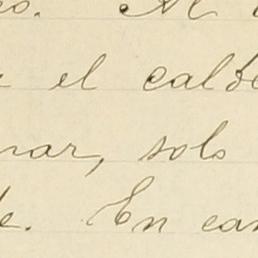 o. Al
el calde
nar, solo
e. En can